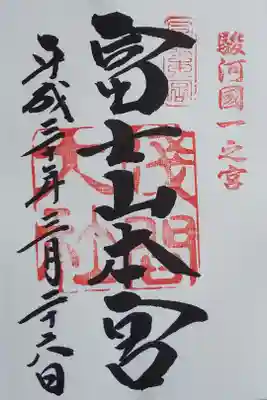 駿河國一之宮
富士山本宮
淺間
大社
平成三十年三月二十八日